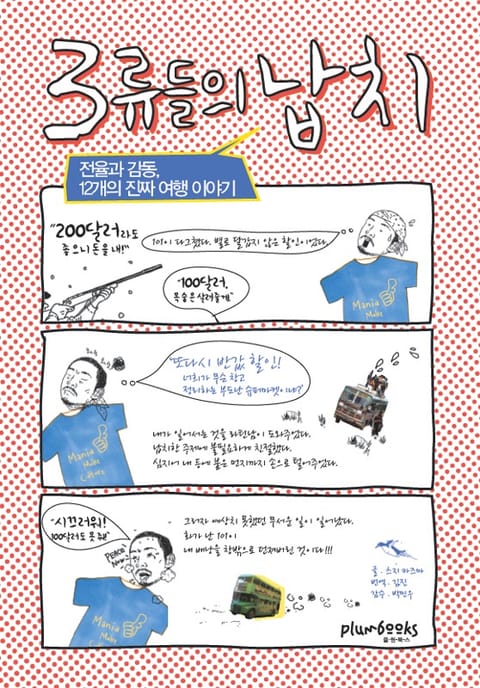 3류들의 납치
전율과 감동,
12개의 진짜 여행 이야기
"200달러라도
좋으니 돈을 내!"
101이 다그쳤다. 별로 달갑지 않은 할인이었다.
"100달러,
목숨은 살려줄게"
Mania
Make
"또다시 반값 할인!
너희가 무슨 창고
정리하는 부도난 슈퍼마켓이냐?"
내가 일어서는 것을 라틴남이 도와주었다.
납치한 주제에 불필요하게 친절했다.
심지어 내 등에 붙은 먼지까지 손으로 털어주었다.
Mania
Make
Culture
"시끄러워!
100달러도 못 줘!"
PEACE
NOW
그러자 예상치 못했던 무서운 일이 일어났다.
화가 난 101이
내 배낭을 창밖으로 던져버린 것이다!!!
Mania
Make
Culture
글. 스지 카즈마
번역. 김진
감수. 박민우
plumbooks
플·럼·북·스